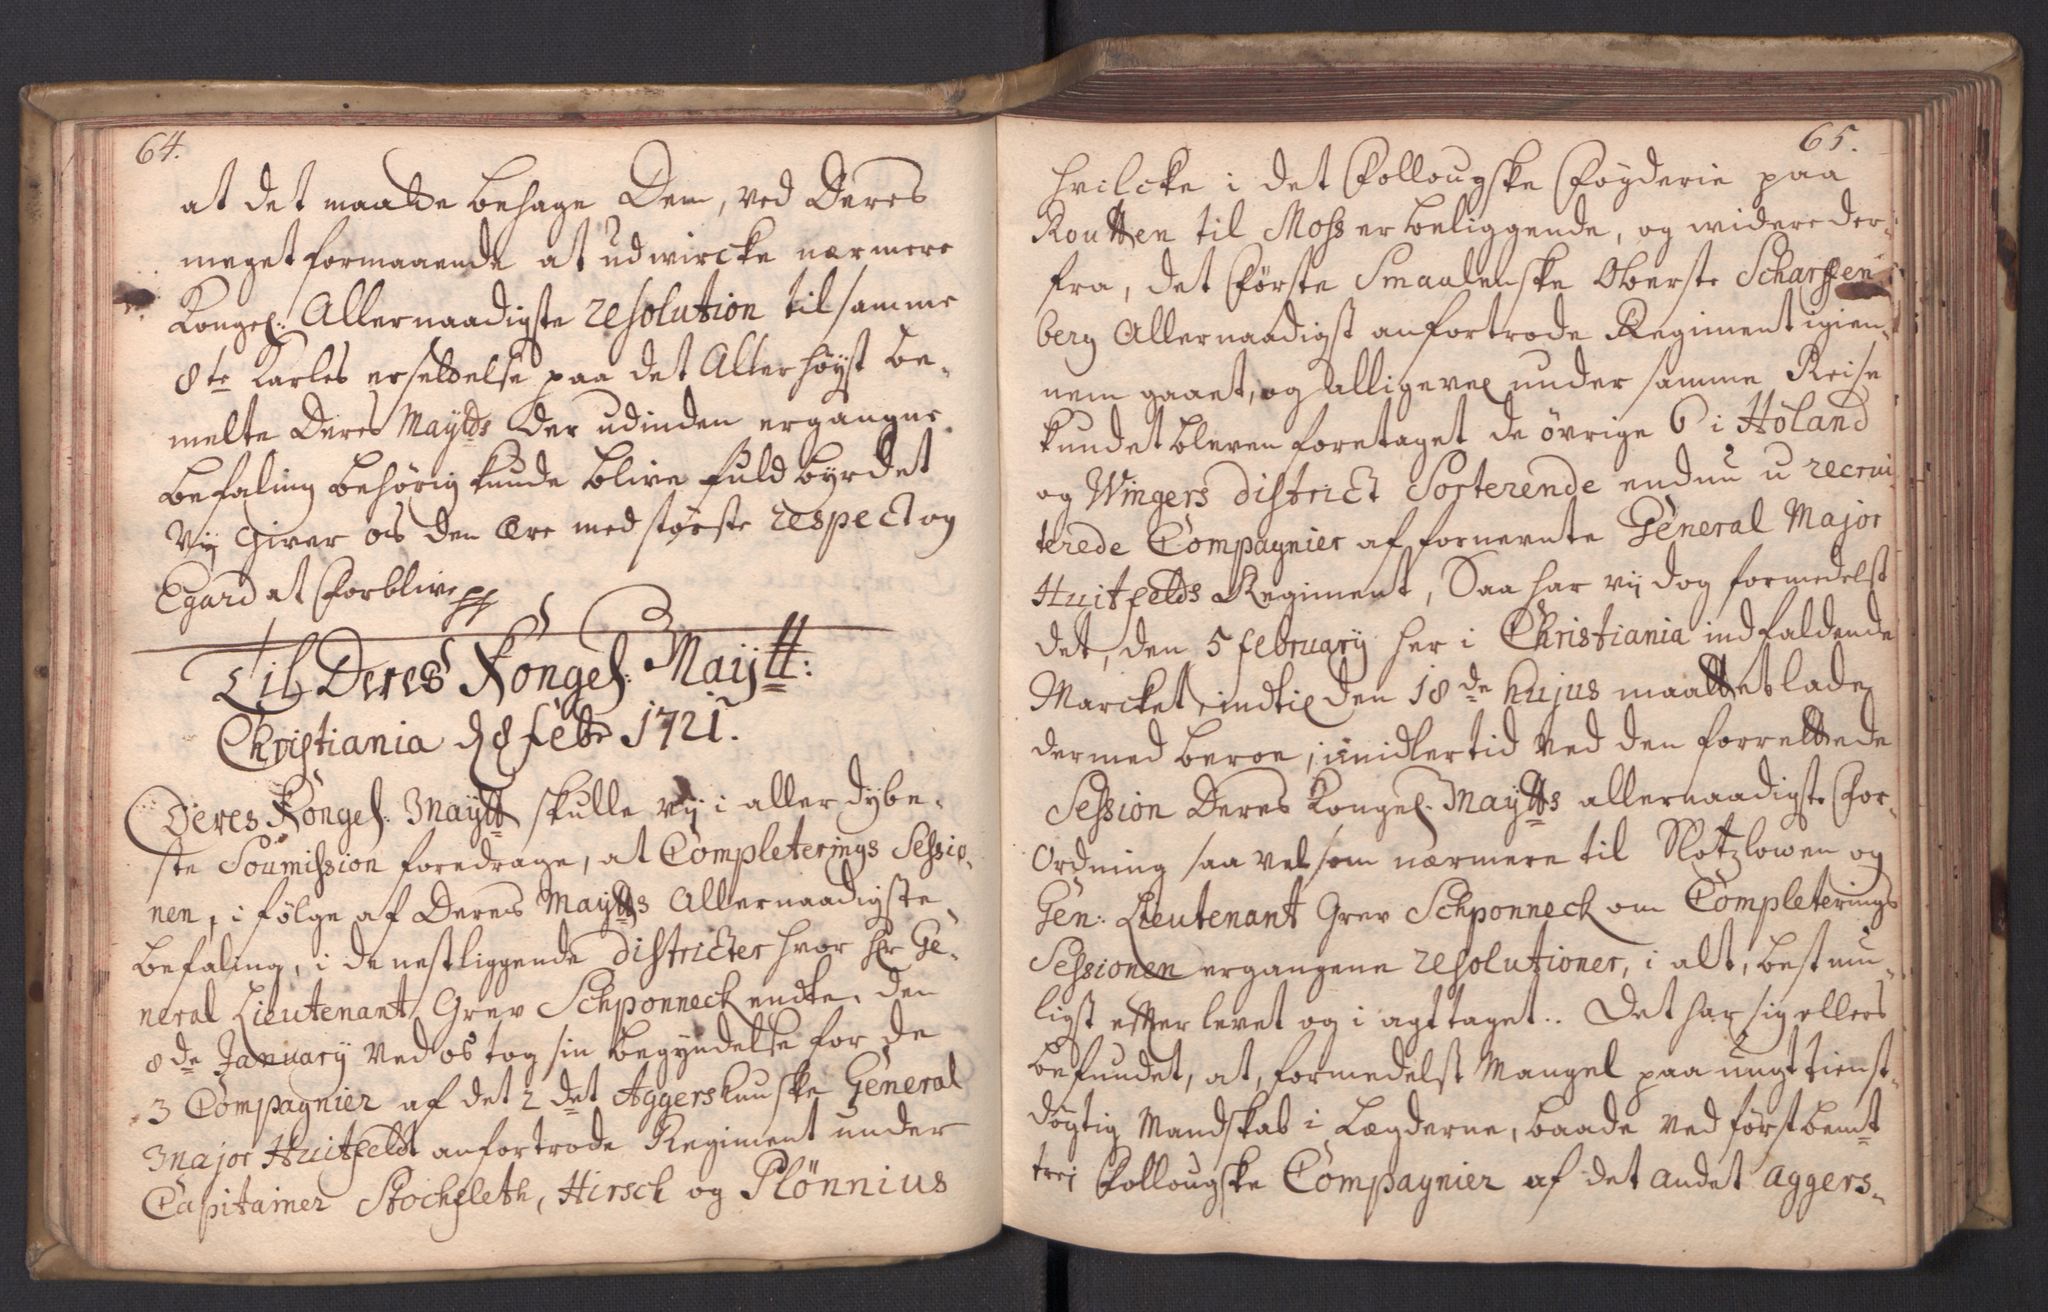 64.
at det maatte behage Dem, ved Deres
meget formaaende at udwircke nærmere
Kongel: Allernaadigste resolution til samme
8te Karles erstattelse paa det Allerhøyst be-
melte Deres Maytts der udinden ergangne
befaling behørig kunde blive fuldbyrdet
Vij Giver os den Ære med største respect og
Egard at Forblive pp
Til Deres Kongel: Maijtt:
Christiania d 8 febr 1721.
Deres Kongel: Maytt skulle vij i aller dybe-
ste Soumission foredrage, at Completerings Sessio-
nen, i følge af Deres Maytts Allernaadigste
befaling, i de nestliggende districter hvor Hr Ge-
neral Lieutenant Grev Schponneck endte, den
8de January ved os tog sin begyndelse for de
3 Compagnier af det 2det Aggershuuske General
Major Huitfeldt anfortrode Regiment under
Capitainer Stochfleth, Hirsch og Plönnius
65.
hvilcke i det Follougske Føgderie paa
Routten til Moss er beliggende, og widere der-
fra, det Første Smaalenske Oberste Scharffen
berg Allernaadigst anfortrode Regiment igien-
nem gaaet, og alligevel under samme Reise
kundet bleven foretaget de øvrige 6 i Höland
og Wingers district Sorterende endnu u recrui-
terede Compagnier af fornevnte General Major
Huitfelds Regiment, Saa har vij dog formedelst
det, den 5 february her i Christiania indfaldende
Marcket indtil den 18de hujus maattet lade
dermed beroe, imidlertid ved den forrettede
Session Deres Kongel. Maytts allernaadigste For-
Ordning saa vel som nærmere til Slotzlowen og
Gen: Lieutenant Grev Schponneck om Completerings
Sessionen ergangene resolutioner, i alt, best mu-
ligst efterlevet og i agt taget.. Det har sig ellers
befundet, at, formedelst Mangel paa ungt tienst-
døgtig Mandskab i Lægderne, baade ved først bemt
trej Follougske Compagnier af det andet Aggers-